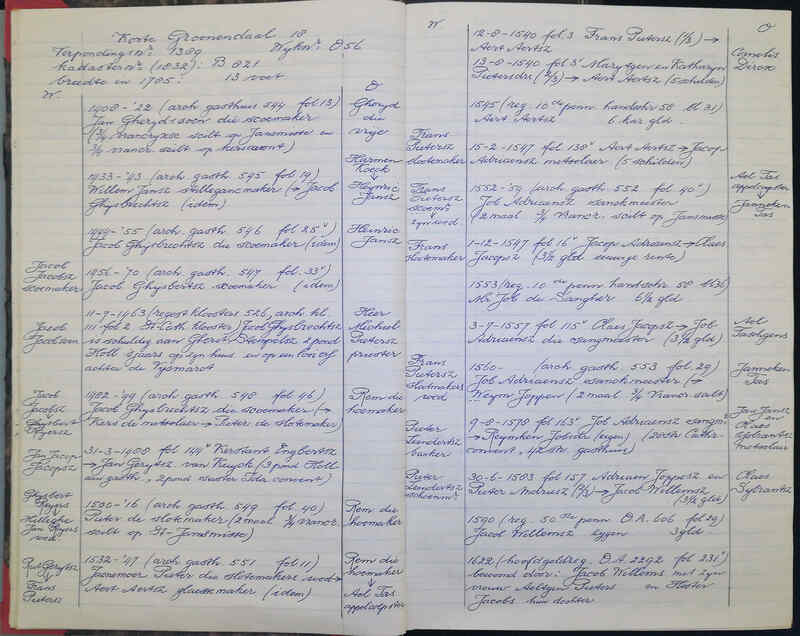 Korte Groenendaal 18
Verpondingsnr: 1389 Wijknr: O 56
Kadasternr (1832): B 821
breedte in 1785: 13 voet
W. O
1408-'22 (arch gasthuis 544 fol 13)
Jan Gherydsoon die scoemaker
(¾ vrancrycxe scilt op Jansmisse en
¾ vrancr. scilt op kersavont)
Gheryd
die
vrije
Harmen
Kock
1433-'43 (arch gasth. 545 fol 19)
Willem Jansz
(→ Jacob
Ghysbrechtsz (idem)
Heynric
Jansz
1449-'55 (arch. gasth. 546 fol 25v)
Jacob Ghysbrechtsz die scoemaker (idem)
Heinric
Jansz
Jacob
Jacobsz
scoemaker
1456-'70 (arch. gasth. 547 fol. 33v)
Jacob Ghysbertsz scoemaker (idem)
Jacob
Jacobszn
11-9-1463 (regest kloosters 526, arch. kl.
III fol 2 St. Cath. klooster) Jacob Ghysbrechtsz
is schuldig aan Gherit 2 pond
Holl 's jaars op zijn huis
achter de Vismarct
Heer
Michiel
Pietersz
priester
Jacob
Jacobsz
↓
Ghysbert
Reyersz
1482-'99 (arch. gasth. 548 fol 46)
Jacob Ghysbrechtsz die scoemaker (→
Kers de metselaer → Pieter de slotemaker)
Rem die
hoemaker
Jan Jacop
Jacopsz
31-3-1498 fol 144v Kerstant Engbertsz
→ Jan Gerytsz van Kuyck (3 pond Holl
en groth., 2 pond convent)
Ghysbert
Reyers
↓
Hillighe
Jan Reyers
wed.
1500-'16 (arch gasth. 549 fol. 40)
Pieter de slotemaker (2 maal ¾ vrancr.
scilt op St. Jansmisse)
Rem die
hoemaker
Rutgerytsz
↓
Frans
Pietersz
1532-'47 (arch gasth. 551 fol 11)
Pieter die slotemakers wed →
Aert Aertsz glaesmaker (idem)
Rem die
hoemaker
↓
Ael Tas
appelcopster
W O
12-8-1540 fol. 3 Frans Pietersz (⅓) →
Aert Aertsz
13-8-1540 fol 3v Marytgen en Katharyn
Pietersdrs (⅔) → Aert Aertsz (5 schilden)
Cornelis
Dircx
1545 (reg. 10de penn handschr 58 bl 31)
Aert Aertsz 6 kar. gld.
Frans
Pietersz
slotemaker
15-2-1547 fol 138v Aert Aertsz → Jacop
Adriaensz metselaer (5 schilden)
Frans
Pietersz
↓
zijn wed.
1552-'59 (arch gasth. 552 fol 40v)
Job Adriaensz sanckmeester
(2 maal ¾ vrancr. scilt op Jansmisse)
Ael Tas
appelcopster
↓
Janneken
Tas
Frans
slotemaker
1-12-1547 fol 16v Jacop Adriaensz → Claes
Jacopsz (3½ gld eeuwige rente)
1553 (reg. 10de penn handschr 58 bl 36)
Mr Job die Sangher 6½ gld
3-9-1557 fol 115v Claes Jacopsz → Job
Adriaensz die sangmeister (3½ gld)
Ael
Tasschgens
Frans
Pietersz
Slotmakers
wed
1560- (arch gasth. 553 fol. 29)
Job Adriaensz sanckmeester (→
Weym Joppen (2 maal ¾ vrancr scilt)
Janneken
Tas
Pieter
Lendertsz
backer
9-8-1578 fol 163v Job Adriaensz sangm:
→ Reymken Jobsdr (eigen) (20 str Cathr.
convent, 4½ str. gasthuis)
Jan Jansz
en
Claes
Zybrantsz
metselaer
Pieter
Lendertsz
30-6-1583 fol 157 Adriaen Joppesz en
Pieter Andriesz (½) → Jacob Willemsz
(3½ gld)
Claes
Zybrantsz
1590 (reg. 50ste penn O.A. 606 fol 29)
Jacob Willemsz eygen 3 gld.
1622 (hoofdgeldreg. O.A. 2292 fol 231v)
bewoond door: Jacob Willems met zyn
vrouw Aeltgen Pieters en Hester
Jacobs hun dochter